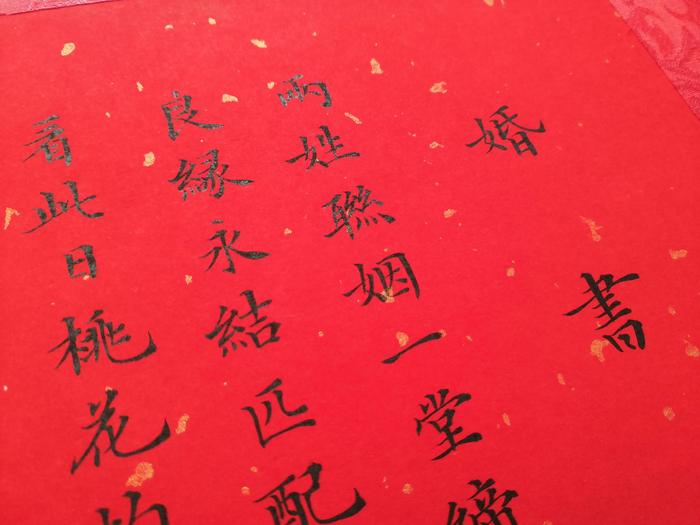 婚書
兩姓聯姻一堂締
良緣永結匹配
看此日桃花灼